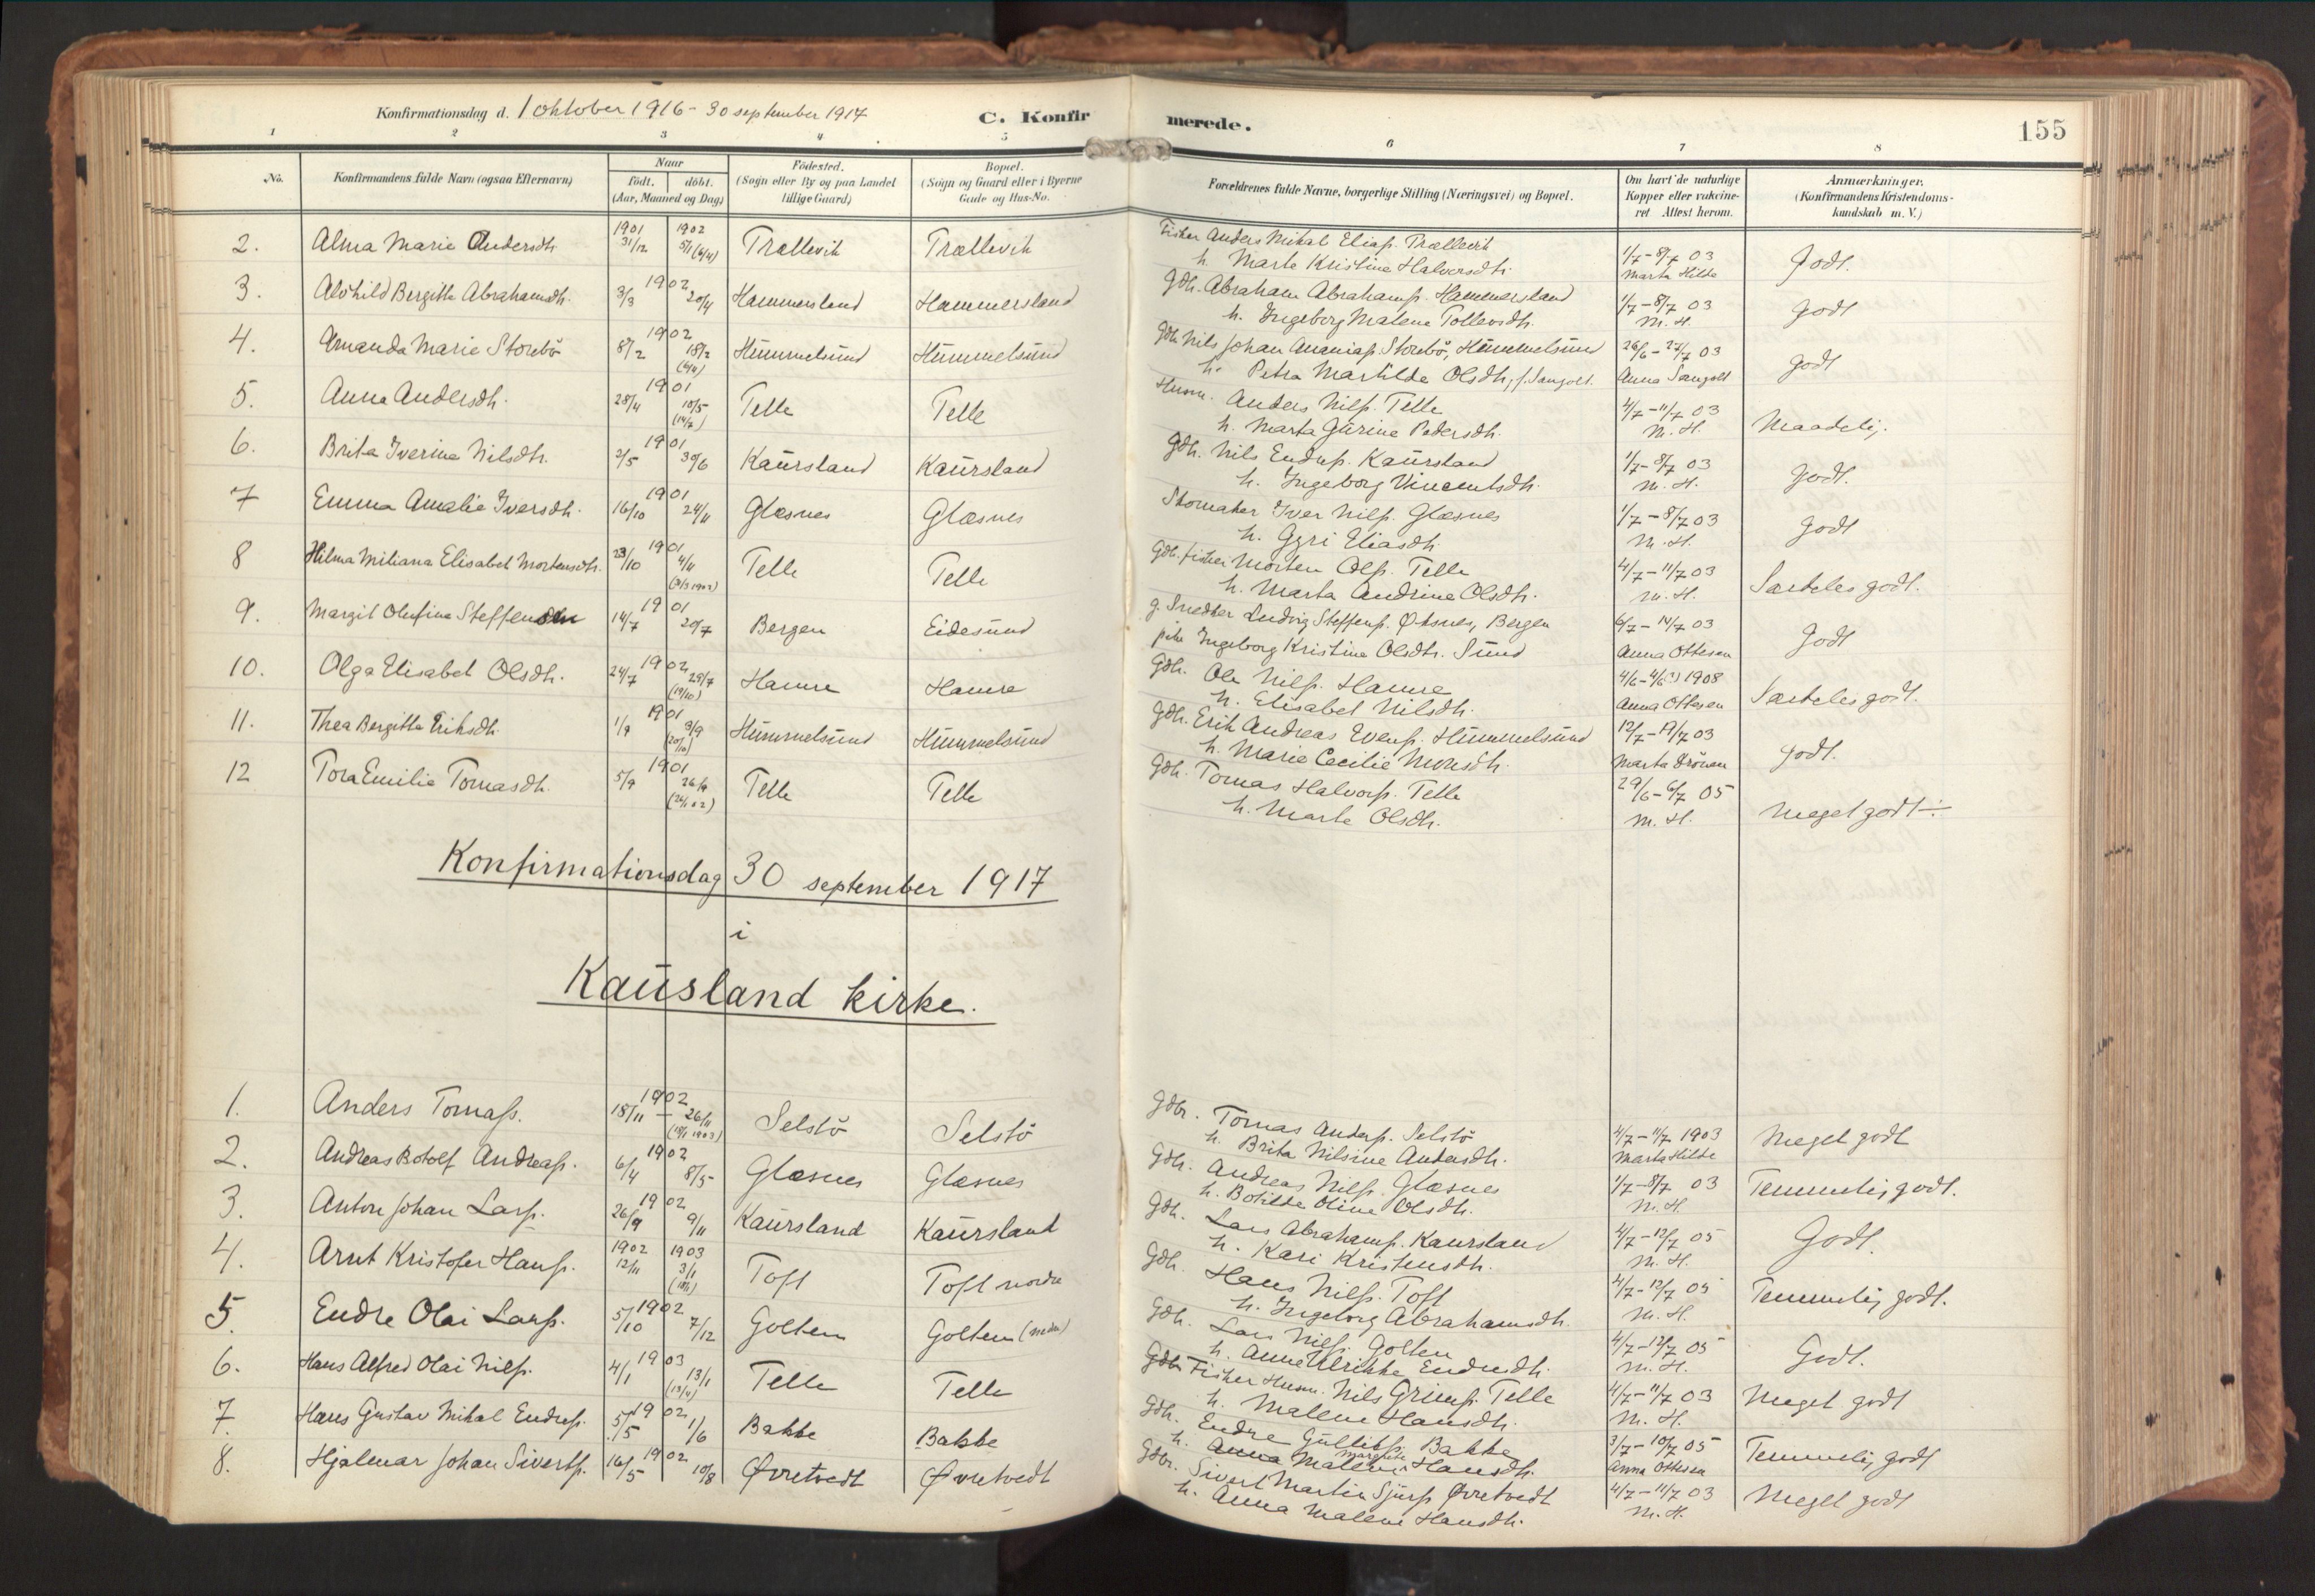 Konfirmationsdag d. 1 oktober 1916 - 30 september 1917
C. Konfirmerede.
155
1 2 3 4 5 6 7 8
No.
Konfirmandens fulde Navn (ogsaa Efternavn)
Naar
födt. döbt.
(Aar, Maaned og Dag)
Födested.
(Sogn eller By og paa Landet
tillige Gaard)
Bopæl.
(Sogn og Gaard eller i Byerne
Gade og Hus-No.
Forældrenes fulde Navne, borgerlige Stilling (Næringsvei) og Bopæl.
Om havt de naturlige
Kopper eller vakcine-
ret Attest herom.
Anmærkninger.
(Konfirmandens Kristendoms-
kundskab m. V.)
2. Alma Marie Andersdtr. 1901 31/12 1902 5/1 (6/4) Trællevik Trællevik Fisker Anders Mikal Eliass. Trællevik 1/7 - 8/7 03 Godt.
h. Marte Kristine Halvorsdtr. Marta Hilde
3. Alvhild Bergitte Abrahamsdtr. 1902 3/3 20/4 Hammersland Hammersland Gdb. Abraham Abrahams. Hammersland 1/7 - 8/7 03 Godt
h. Ingeborg Malene Tollevsdtr. M. H.
4. Amanda Marie Storebö 1902 8/2 18/2 (6/4) Hummelsund Hummelsund Gdb. Nils Johan Ananias. Storebö, Hummelsund 26/6 - 27/7 03 godt
h. Petra Martilde Olsdtr. f. Sangolt. Anna Sangolt
5. Anna Andersdtr. 1901 28/4 10/5 (14/7) Telle Telle Husm. Anders Nilss. Telle 4/7 - 11/7 03 Maadelig.
h. Marta Gurine Pedersdtr. M. H.
6. Brita Iverine Nilsdtr. 1901 2/5 30/6 Kaursland Kaursland Gdb. Nils Endres. Kaursland 1/7 - 8/7 03 Godt.
h. Ingeborg Vincentsdtr. M. H.
7 Emma Amalie Iversdtr. 1901 16/10 24/11 Glæsnes Glæsnes Skomaker Iver Nilss. Glæsnes 1/7 - 8/7 03 Godt
h. Gyri Eliasdtr. M. H.
8 Hilma Miliana Elisabet Mortensdtr. 1901 23/10 4/11 (31/3 1902) Telle Telle Gdb. fisker Morten Ols. Telle 4/7 - 11/7 03 Særdeles godt.
h. Marta Andrine Olsdtr. M. H.
9. Margit Olufine Steffensen 1901 14/7 20/7 Bergen Eidesund g. Snedker Ludvig Steffens. Öksnes, Bergen 6/7 - 14/7 03 Godt
pike Ingeborg Kristine Olsdtr. Sund Anna Ottesen
10. Olga Elisabet Olsdtr. 1902 24/7 29/7 (19/10) Hamre Hamre Gdb. Ole Nilss. Hamre 4/6 - 4/6(?) 1908 Særdeles godt.
h. Elisabet Nilsdtr. Anna Ottesen
11. Thea Bergitta Eriksdtr. 1901 1/9 3/9 (20/10) Hummelsund Hummelsund Gdb. Erik Andreas Evens. Hummelsund 12/7 - 19/7 03 godt.
h. Marie Cecilie Monsdtr. Marta Drönen
12 Tora Emilie Tomasdtr. 1901 5/9 26/9 (26/1 02) Telle Telle Gdb. Tomas Halvors. Telle 29/6 - 6/7 05 Meget godt ÷
h. Marte Olsdtr. M. H.
Konfirmationsdag 30 september 1917
i
Kausland kirke.
1. Anders Tomass. 1902 18/11 – 26/11 (18/1 1903) Selstö Selstö Gdbr. Tomas Anders. Selstö 4/7 - 11/7 1903 Meget godt
h. Brita Nilsine Andersdtr. Marta Hilde
2. Andreas Botolf Andreass. 1902 6/4 8/5 Glæsnes Glæsnes Gdb. Andreas Nilss. Glæsnes 1/7 - 8/7 03 Temmelig godt.
h. Botilde Oline Olsdtr. M. H.
3. Anton Johan Larss. 1902 26/9 9/11 Kaursland Kaursland Gdb. Lars Abrahams. Kaursland 4/7 - 12/7 05 Godt.
h. Kari Kristensdtr. M. H.
4. Arnt Kristofer Hanss. 1902 12/11 1903 3/1 (18/1) Toft Toft nordre Gdb. Hans Nilss. Toft 4/7 - 12/7 05 Temmelig godt.
h. Ingeborg Abrahamsdtr. M. H.
5. Endre Olai Larss. 1902 5/10 7/12 Golten Golten (nedre) Gdb. Lars Nilss. Golten 4/7 - 12/7 05 Godt.
h. Anne Ulrikke Endredtr. M. H.
6. Hans Alfred Olai Nilss. 1903 4/1 13/1 (13/4) Telle Telle Fisker Husm. Nils Grims. Telle 4/7 - 11/7 03 Meget godt
h. Malene Hansdtr. M. H.
7. Hans Gustav Mikal Endres. 1902 5/5 1/6 Bakke Bakke Gdb. Endre Gulliks. Bakke 3/7 - 10/7 05 Temmelig godt
h. Anna Malene Margrete Hansdtr. Anna Ottesen
8. Hjalmar Johan Siverts. 1902 16/5 10/8 Øvretvedt Øvretvedt Gdbr. Sivert Martin Sjurs. Øvretvedt 4/7 - 11/7 03 Meget godt
h. Anna Malene Hansdtr. M. H.